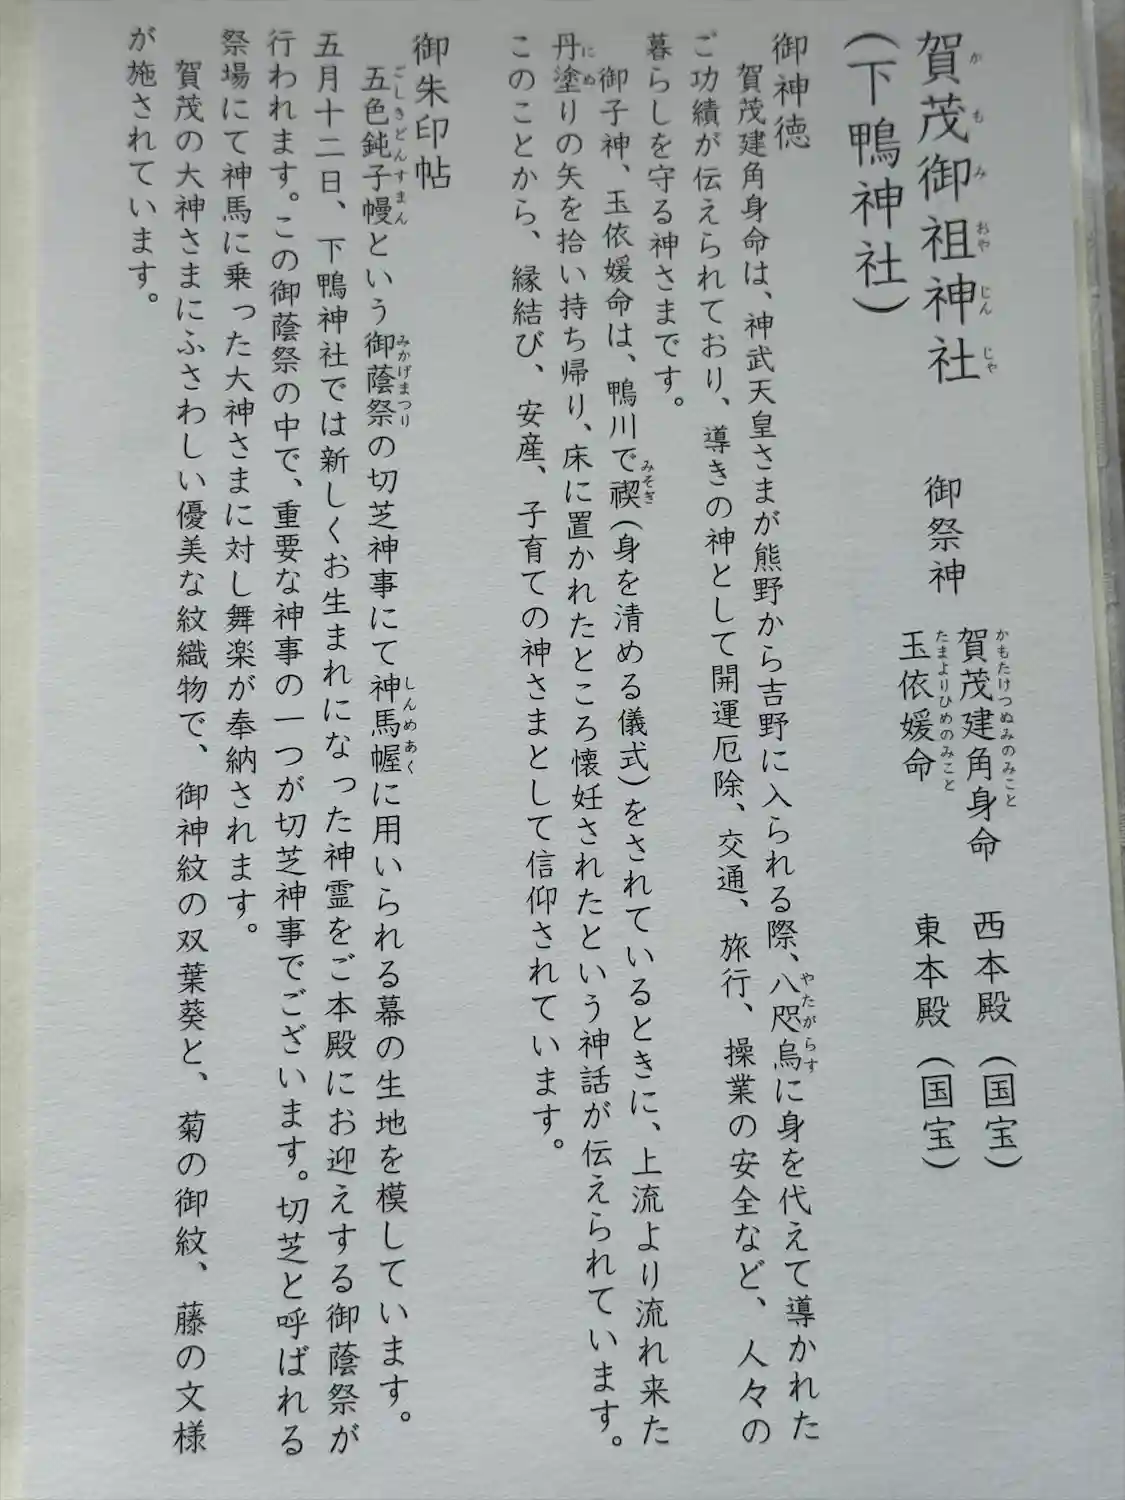 賀茂御祖神社
かもみおやじんじゃ
(下鴨神社)
御祭神
賀茂建角身命 西本殿 (国宝)
かもたけつぬみのみこと
玉依媛命 東本殿 (国宝)
たまよりひめのみこと
御神徳
賀茂建角身命は、神武天皇さまが熊野から吉野に入られる際、八咫烏に身を代えて導かれた
やたがらす
ご功績が伝えられており、導きの神として開運厄除、交通、旅行、操業の安全など、人々の
暮らしを守る神さまです。
御子神、玉依媛命は、鴨川で禊(身を清める儀式)をされているときに、上流より流れ来た
みそぎ
丹塗りの矢を拾い持ち帰り、床に置かれたところ懐妊されたという神話が伝えられています。
にぬ
このことから、縁結び、安産、子育ての神さまとして信仰されています。
御朱印帖
五色鈍子幔という御蔭祭の切芝神事にて神馬幄に用いられる幕の生地を模しています。
ごしきどんすまん みかげまつり しんめあく
五月十二日、下鴨神社では新しくお生まれになった神霊をご本殿にお迎えする御蔭祭が
行われます。この御蔭祭の中で、重要な神事の一つが切芝神事でございます。切芝と呼ばれる
祭場にて神馬に乗った大神さまに対し舞楽が奉納されます。
賀茂の大神さまにふさわしい優美な紋織物で、御神紋の双葉葵と、菊の御紋、藤の文様
が施されています。